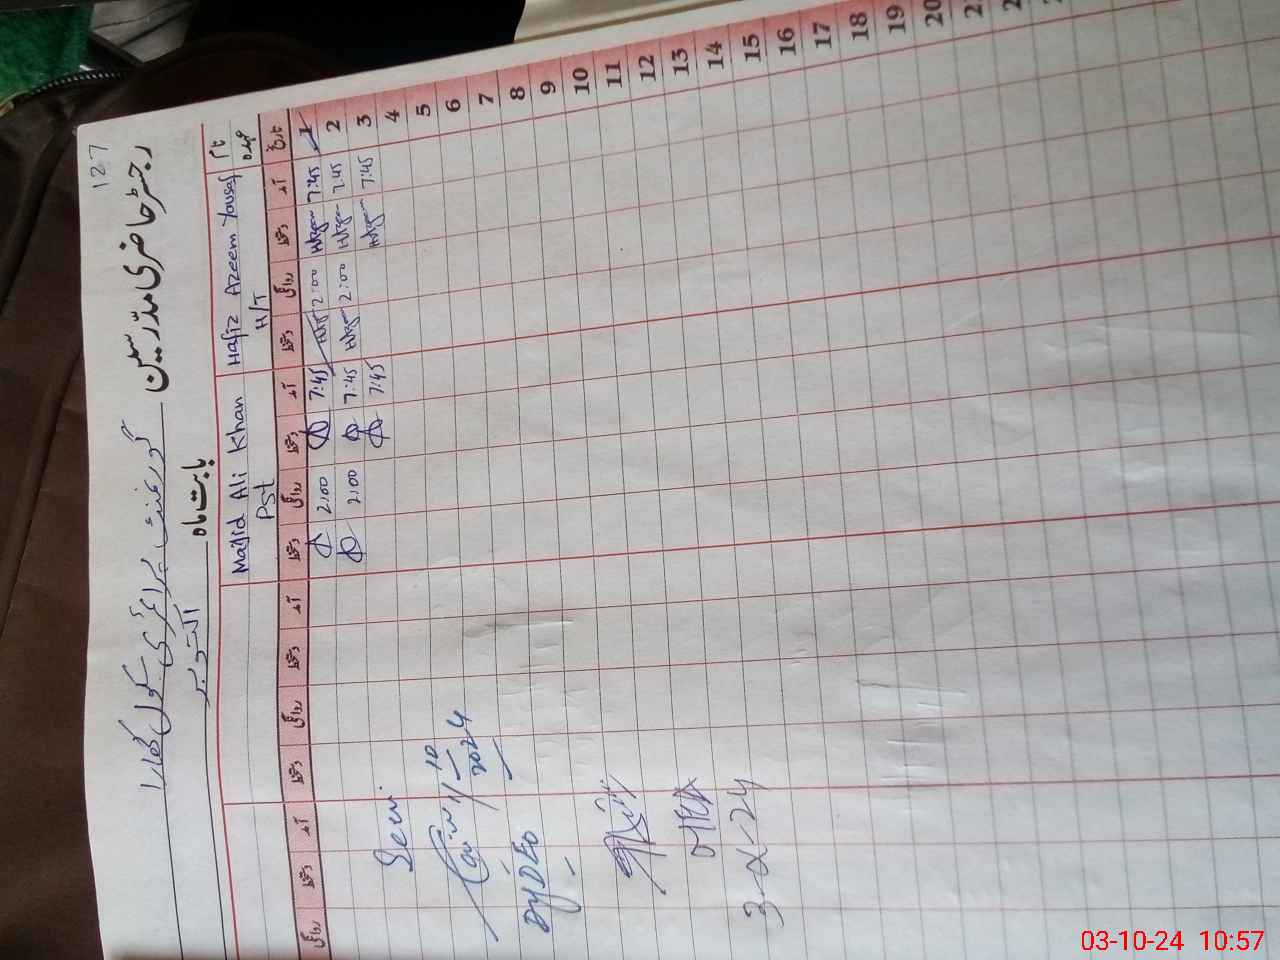 127
رجسٹر حاضری مدرسین گورنمنٹ پرائمری سکول
بابت ماہ اکتوبر
نام Hafiz Azeem Yousaf Majid Ali Khan
عہدہ H/T Pst
تاریخ آمد دستخط روانگی دستخط آمد دستخط روانگی دستخط آمد دستخط روانگی دستخط آمد دستخط روانگی
1 7:45 2:00 7:45 2:00
2 7:45 2:00 7:45 2:00
3 7:45 7:45
4
5
6
7
8
9
10
11
12
13
14
15
16
17
18
19
20
Seen
1/10/2024
Dy DEO
3-X-24
03-10-24 10:57